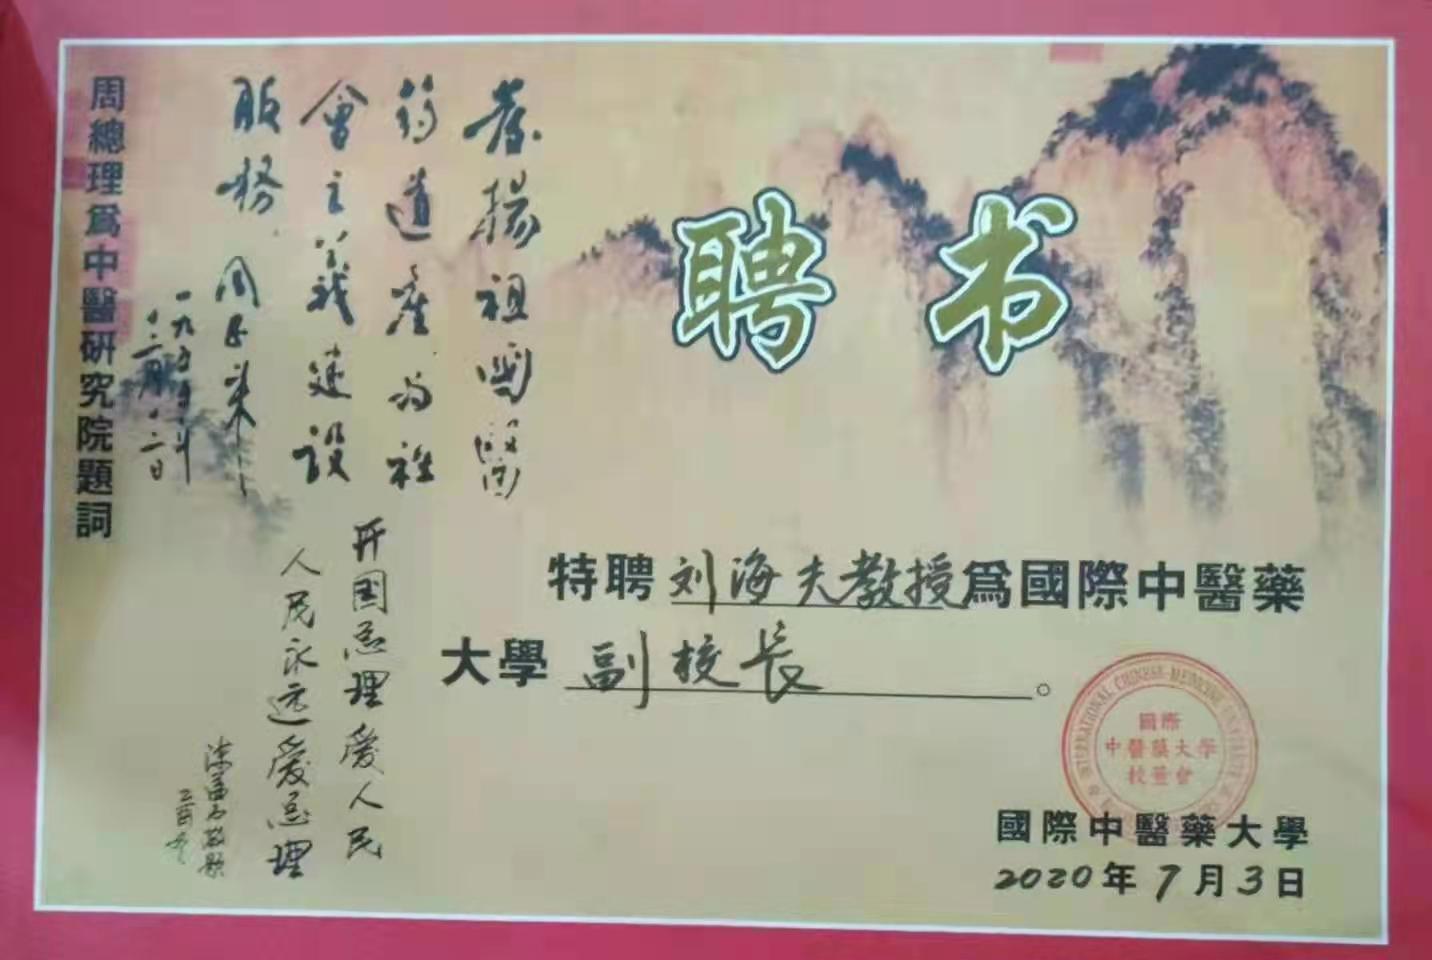 周總理爲中醫研究院題詞
發揚祖國醫
葯遺產爲社
會主義建設
服務
周恩来
一九五五年
十二月十二日
开国总理爱人民
人民永远爱总理
敬题
聘书
特聘刘海夫教授爲國際中醫藥
大學副校长。
INTERNATIONAL CHINESE MEDICINE UNIVERSITY
國際
中醫藥大學
校董會
國際中醫藥大學
2020年7月3日